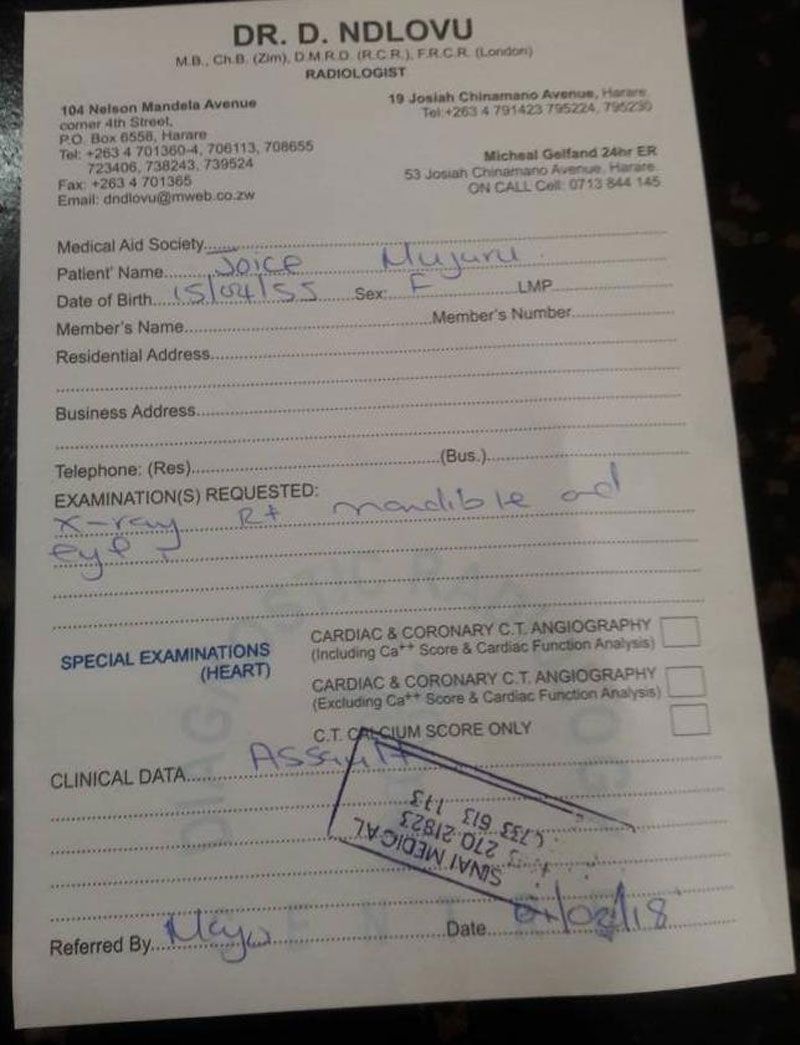 DR. D. NDLOVU
M.B., Ch.B. (Zim), D.M.R.D. (R.C.R.), F.R.C.R. (London)
RADIOLOGIST
104 Nelson Mandela Avenue
corner 4th Street,
P.O. Box 6558, Harare
Tel: +263 4 701360-4, 706113, 708655
723406, 738243, 739524
Fax: +263 4 701365
Email: dndlovu@mweb.co.zw
19 Josiah Chinamano Avenue, Harare
Tel:+263 4 791423 795224, 795230
Micheal Gelfand 24hr ER
53 Josiah Chinamano Avenue, Harare
ON CALL Cell: 0713 844 145
Medical Aid Society
Patient' Name Joice Mujuru
Date of Birth 15/04/55 Sex: F LMP
Member's Name Member's Number
Residential Address
Business Address
Telephone: (Res) (Bus.)
EXAMINATION(S) REQUESTED:
x-ray Rt mandible ad
eye
DIAGNOSTIC RADIOLOG
SPECIAL EXAMINATIONS
(HEART)
CARDIAC & CORONARY C.T. ANGIOGRAPHY
(Including Ca++ Score & Cardiac Function Analysis)
CARDIAC & CORONARY C.T. ANGIOGRAPHY
(Excluding Ca++ Score & Cardiac Function Analysis)
C.T. CALCIUM SCORE ONLY
CLINICAL DATA Assault
SINAI MEDICAL
270 21823
0733 613 173
Referred By Date /02/18